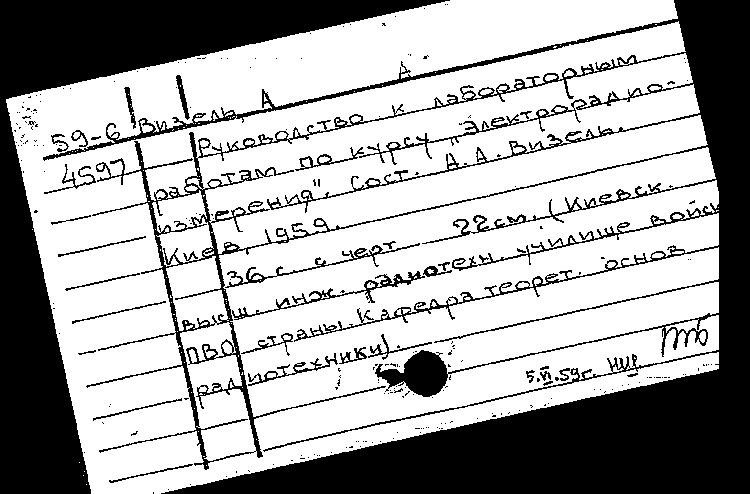 А
59-6 Визель, А
4597 Руководство к лабораторным
работам по курсу "Электрорадио-
измерения". Сост. А.А. Визель.
Киев, 1959.
36 с с черт 22 см. (Киевск.
высш. инж. радиотехн. училище войск
ПВО страны. Кафедра теорет. основ
радиотехники).
5.VI.59г.